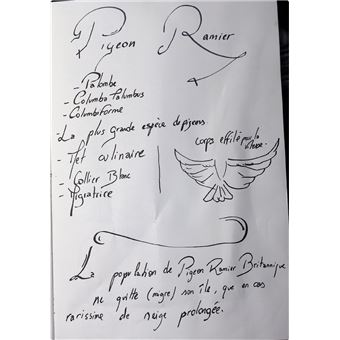 Pigeon Ramier
- Palombe
- Columba Palumbus
- Columbiforme
- La plus grande espèce de pigeons
- Met culinaire
- Collier Blanc
- Migratrice
corps effilé pour la
vitesse.
La population de Pigeon Ramier Britannique
ne quitte (migre) son île, que en cas
rarissime de neige prolongée.